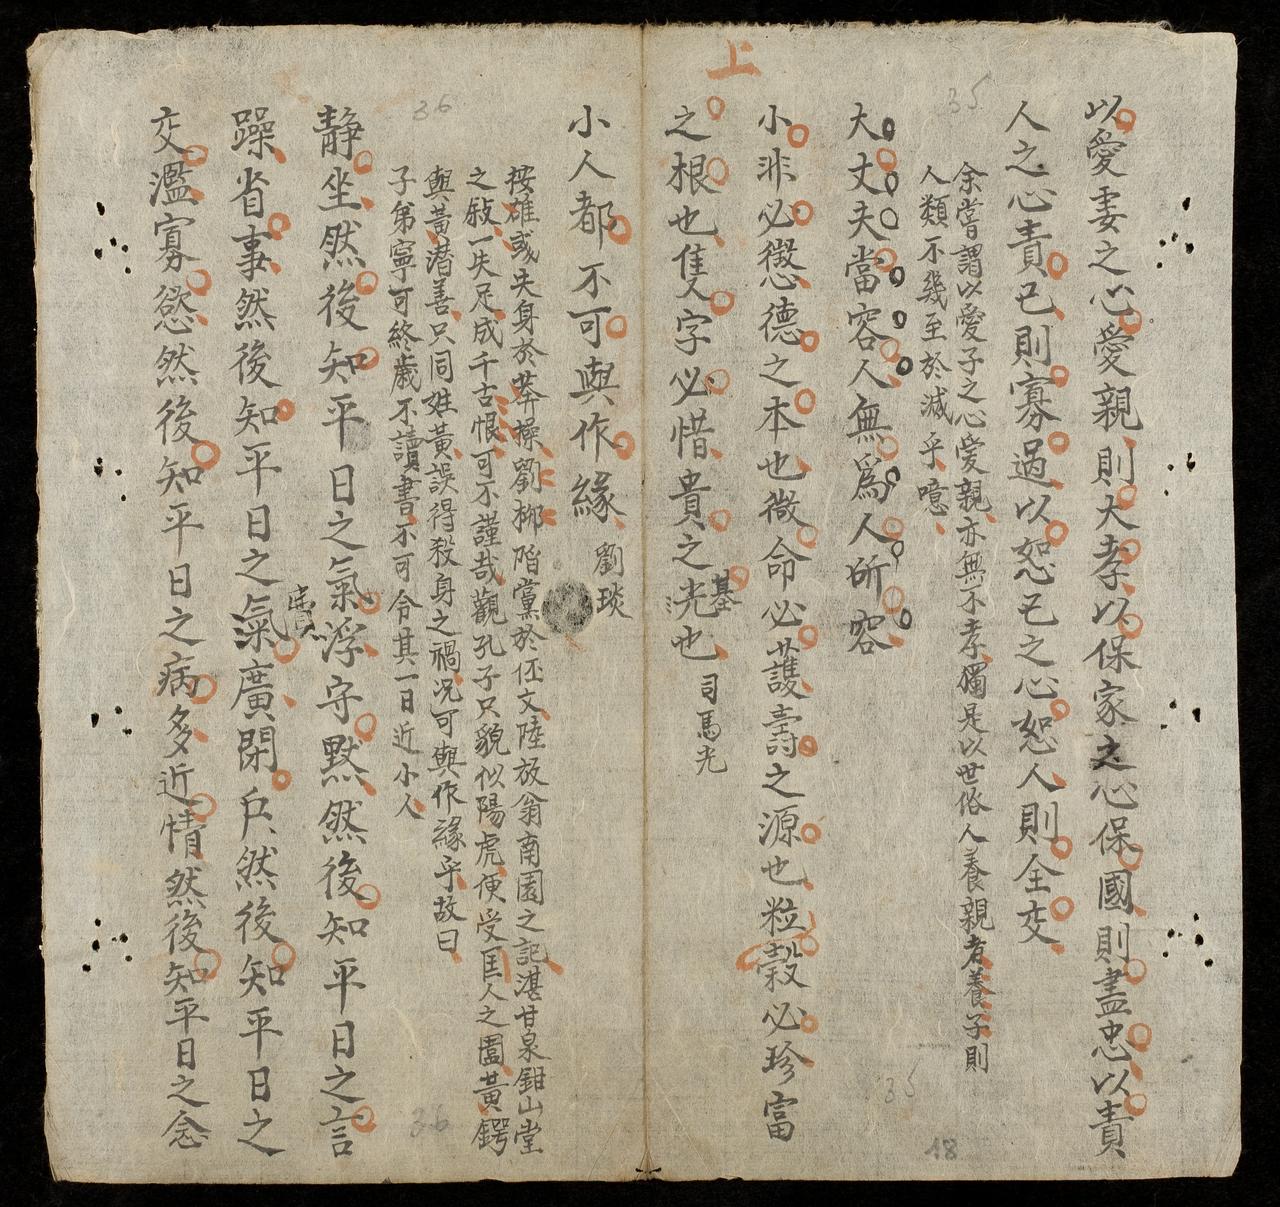 上
以愛妻之心愛親則大孝以保家之心保國則盡忠以責
人之心責己則寡過以恕己之心恕人則全交
余嘗謂以愛子之心愛親亦無不孝獨是以世俗人養親者養子則
人類不幾至於滅乎噫
大丈夫當容人無爲人所容
小非必懲德之本也微命必護壽之源也粒穀必珍富
之根也隻字必惜貴之基也 司馬光
小人都不可與作緣 劉琰
按雄或失身於莽操劉柳陷黨於伾文陸放翁南園之記湛甘泉鈐山堂
之敍一失足成千古恨可不謹哉觀孔子只貌似陽虎便受匡人之圍黃鍔
與黃潛善只同姓黃誤得殺身之禍况可與作緣乎故曰
子弟寧可終歲不讀書不可令其一日近小人
靜坐然後知平日之氣浮守默然後知平日之言
躁省事然後知平日之費廣閉戶然後知平日之
交濫寡慾然後知平日之病多近情然後知平日之念
35
36
35
36
18